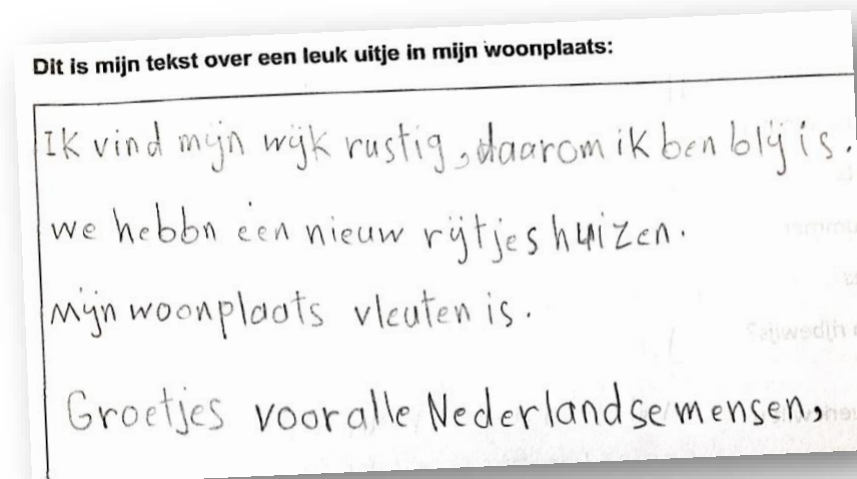 Dit is mijn tekst over een leuk uitje in mijn woonplaats:
Ik vind mijn wijk rustig, daarom ik ben blij is.
we hebbn een nieuw rijtjes huizen.
Mijn woonplaats vleuten is.
Groetjes voor alle Nederlandse mensen,